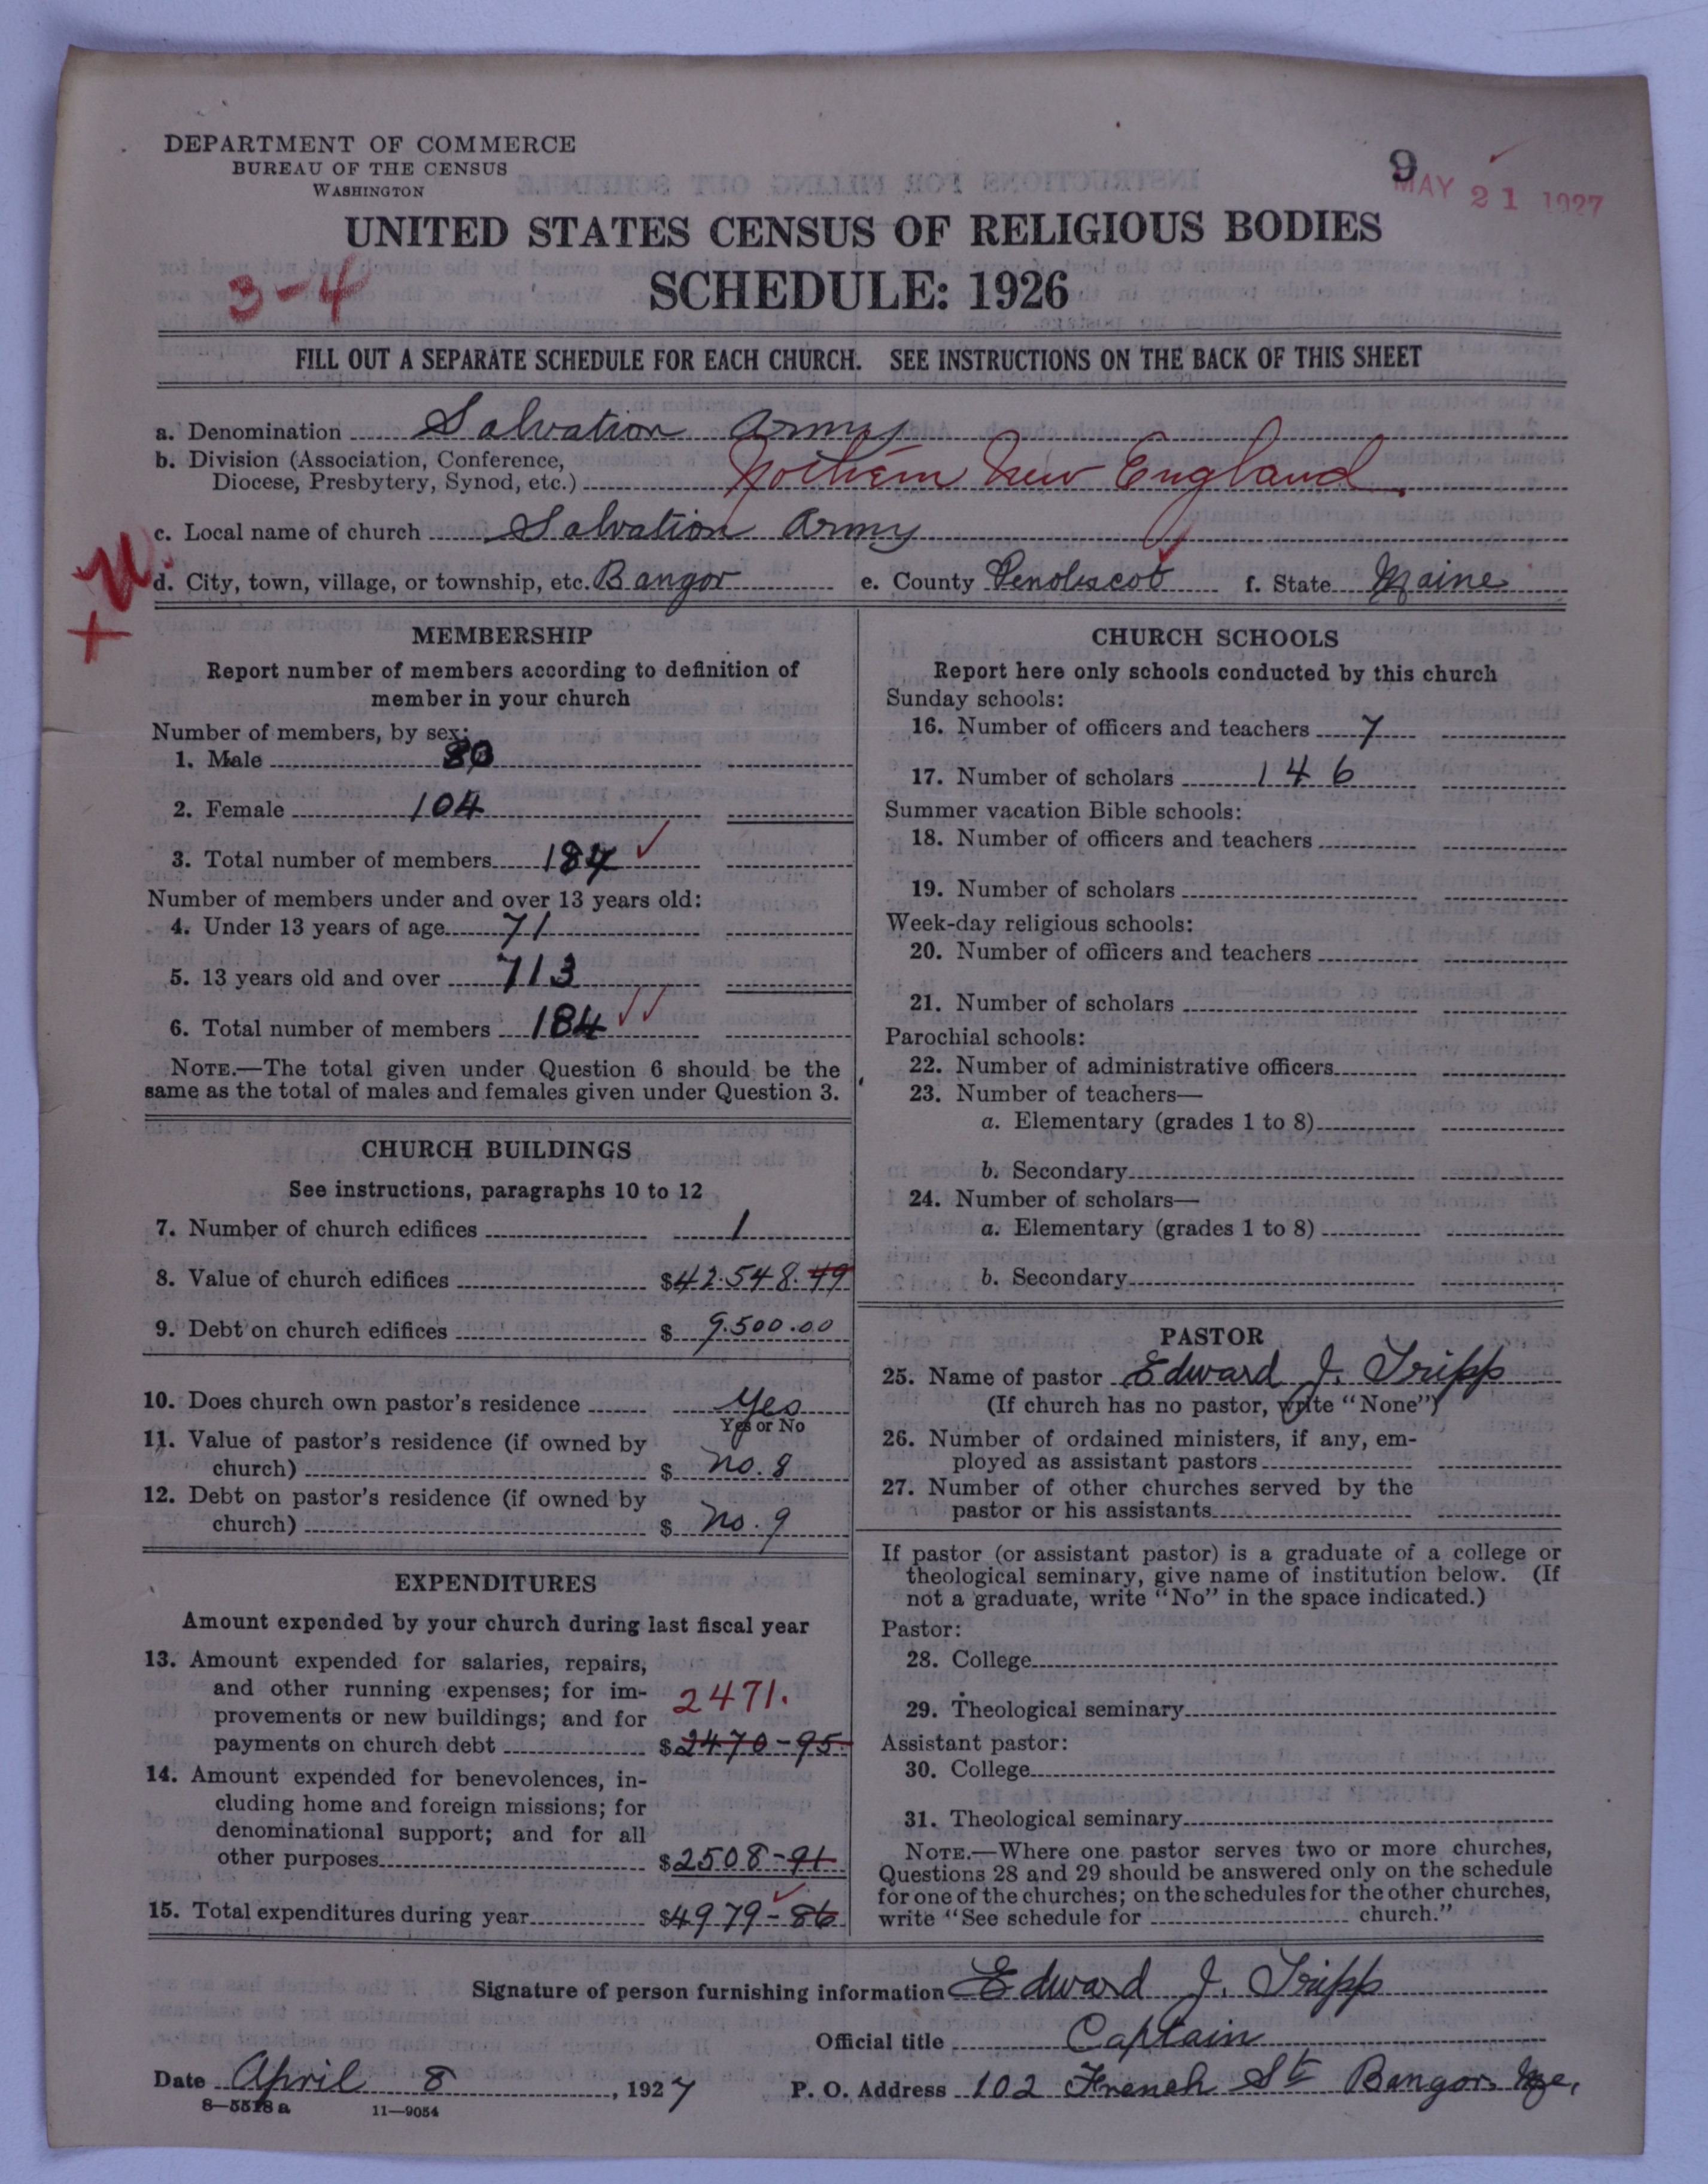 DEPARTMENT OF COMMERCE
BUREAU OF THE CENSUS
WASHINGTON
9
MAY 21 1927
UNITED STATES CENSUS OF RELIGIOUS BODIES
3-4
SCHEDULE: 1926
FILL OUT A SEPARATE SCHEDULE FOR EACH CHURCH. SEE INSTRUCTIONS ON THE BACK OF THIS SHEET
a. Denomination Salvation Army
b. Division (Association, Conference,
Diocese, Presbytery, Synod, etc.) Nothern New England
c. Local name of church Salvation Army
d. City, town, village, or township, etc. Bangor e. County Penobscot f. State Maine
MEMBERSHIP
Report number of members according to definition of
member in your church
Number of members, by sex:
1. Male 80
2. Female 104
3. Total number of members 184
Number of members under and over 13 years old:
4. Under 13 years of age 71
5. 13 years old and over 113
6. Total number of members 184
NOTE.—The total given under Question 6 should be the
same as the total of males and females given under Question 3.
CHURCH BUILDINGS
See instructions, paragraphs 10 to 12
7. Number of church edifices 1
8. Value of church edifices $42.548.49
9. Debt on church edifices $ 9.500.00
10. Does church own pastor's residence Yes
Yes or No
11. Value of pastor's residence (if owned by
church) $ No. 8
12. Debt on pastor's residence (if owned by
church) $ No. 9
EXPENDITURES
Amount expended by your church during last fiscal year
13. Amount expended for salaries, repairs,
and other running expenses; for im-
provements or new buildings; and for 2471.
payments on church debt $2470-95
14. Amount expended for benevolences, in-
cluding home and foreign missions; for
denominational support; and for all
other purposes $2508-91
15. Total expenditures during year $4979-86
CHURCH SCHOOLS
Report here only schools conducted by this church
Sunday schools:
16. Number of officers and teachers 7
17. Number of scholars 146
Summer vacation Bible schools:
18. Number of officers and teachers
19. Number of scholars
Week-day religious schools:
20. Number of officers and teachers
21. Number of scholars
Parochial schools:
22. Number of administrative officers
23. Number of teachers—
a. Elementary (grades 1 to 8)
b. Secondary
24. Number of scholars—
a. Elementary (grades 1 to 8)
b. Secondary
PASTOR
25. Name of pastor Edward J. Tripp
(If church has no pastor, write "None")
26. Number of ordained ministers, if any, em-
ployed as assistant pastors
27. Number of other churches served by the
pastor or his assistants
If pastor (or assistant pastor) is a graduate of a college or
theological seminary, give name of institution below. (If
not a graduate, write "No" in the space indicated.)
Pastor:
28. College
29. Theological seminary
Assistant pastor:
30. College
31. Theological seminary
NOTE.—Where one pastor serves two or more churches,
Questions 28 and 29 should be answered only on the schedule
for one of the churches; on the schedules for the other churches,
write "See schedule for church."
Signature of person furnishing information Edward J. Tripp
Official title Captain
Date April 8, 1927 P. O. Address 102 French St Bangor, Me.
8—5518a 11—9054